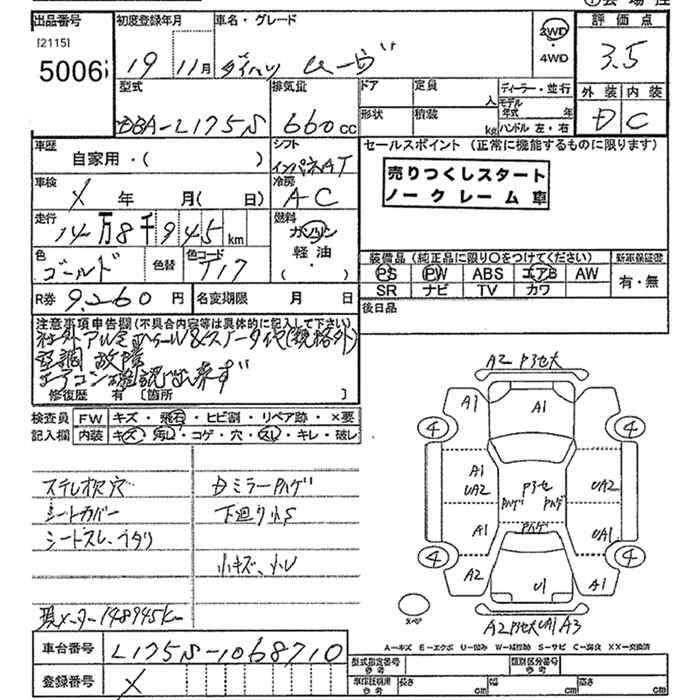 出品番号 初度登録年月 車名・グレード 評価点
[2115]
5006 19 11月 ダイハツ ムーヴ 2WD・4WD 3.5
型式 排気量 ドア 定員 人 ディーラー・並行 外装 内装
DBA-L175S 660cc 形状 積装 kg モデル年式 年 ハンドル 左・右 D C
車歴 自家用・( ) シフト インパネAT セールスポイント (正常に機能するものに限ります)
車検 X 年 月( 日) 冷房 AC 売りつくしスタート
ノークレーム車
走行 14万8千945km 燃料 ガソリン
軽油
( ・ )
色 ゴールド 色替 色コード T17 装備品(純正品に限り○をつけてください) 新車保証書
PS PW ABS エアB AW 有・無
SR ナビ TV カワ
R券 9,260円 名変期限 月 日 後日品
注意事項申告欄(不具合内容等は具体的に記入して下さい)
社外アルミホイール&スノータイヤ(規格外)
空調故障
エアコン確認出来ず
修復歴 有 [箇所 ]
検査員記入欄 FW キズ・飛石・ヒビ割・リペア跡・×要
内装 キズ・汚レ・コゲ・穴・スレ・キレ・破レ
ステレオ欠穴 Dミラーハゲ
シートカバー 下廻りサS
シートスレ、ヘタリ
小キズ、凹
現メーター148945km
A2 P3セ大
A1 A1
4 4
A1 UA2 P3セ UA2
Pハゲ Pハゲ
A1 Pハゲ UA1
4 4
A2 U1 A1
スペア
A2P3セ大UA1A3
A-キズ E-エクボ U-凹み W-補修跡 S-サビ C-腐食 XX-交換済
車台番号 L175S-1068710 型式指定番号 参考 類別区分番号 参考
登録番号 X 車体証明用 参考 長さ cm 幅 cm 高さ cm